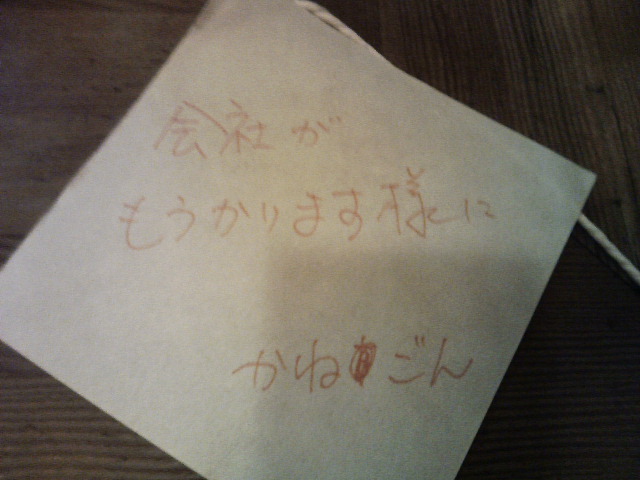 会社が
もうかります様に
かねごん